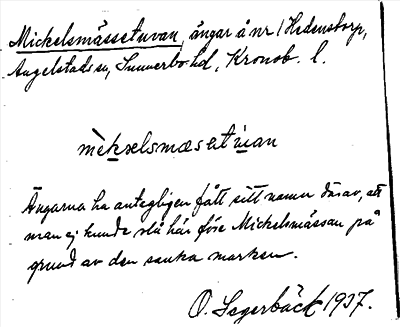 Mickelsmässetuvan, ängar å nr 1 Hedenstorp,
Angelstads sn, Sunnerbo hd, Kronob. l.
mèkxelsmæsetu̇an
Ängarna ha antagligen fått sitt namn därav, att
man ej kunde slå här före Mickelsmässan på
grund av den sanka marken.
O. Sagerbäck 1937.